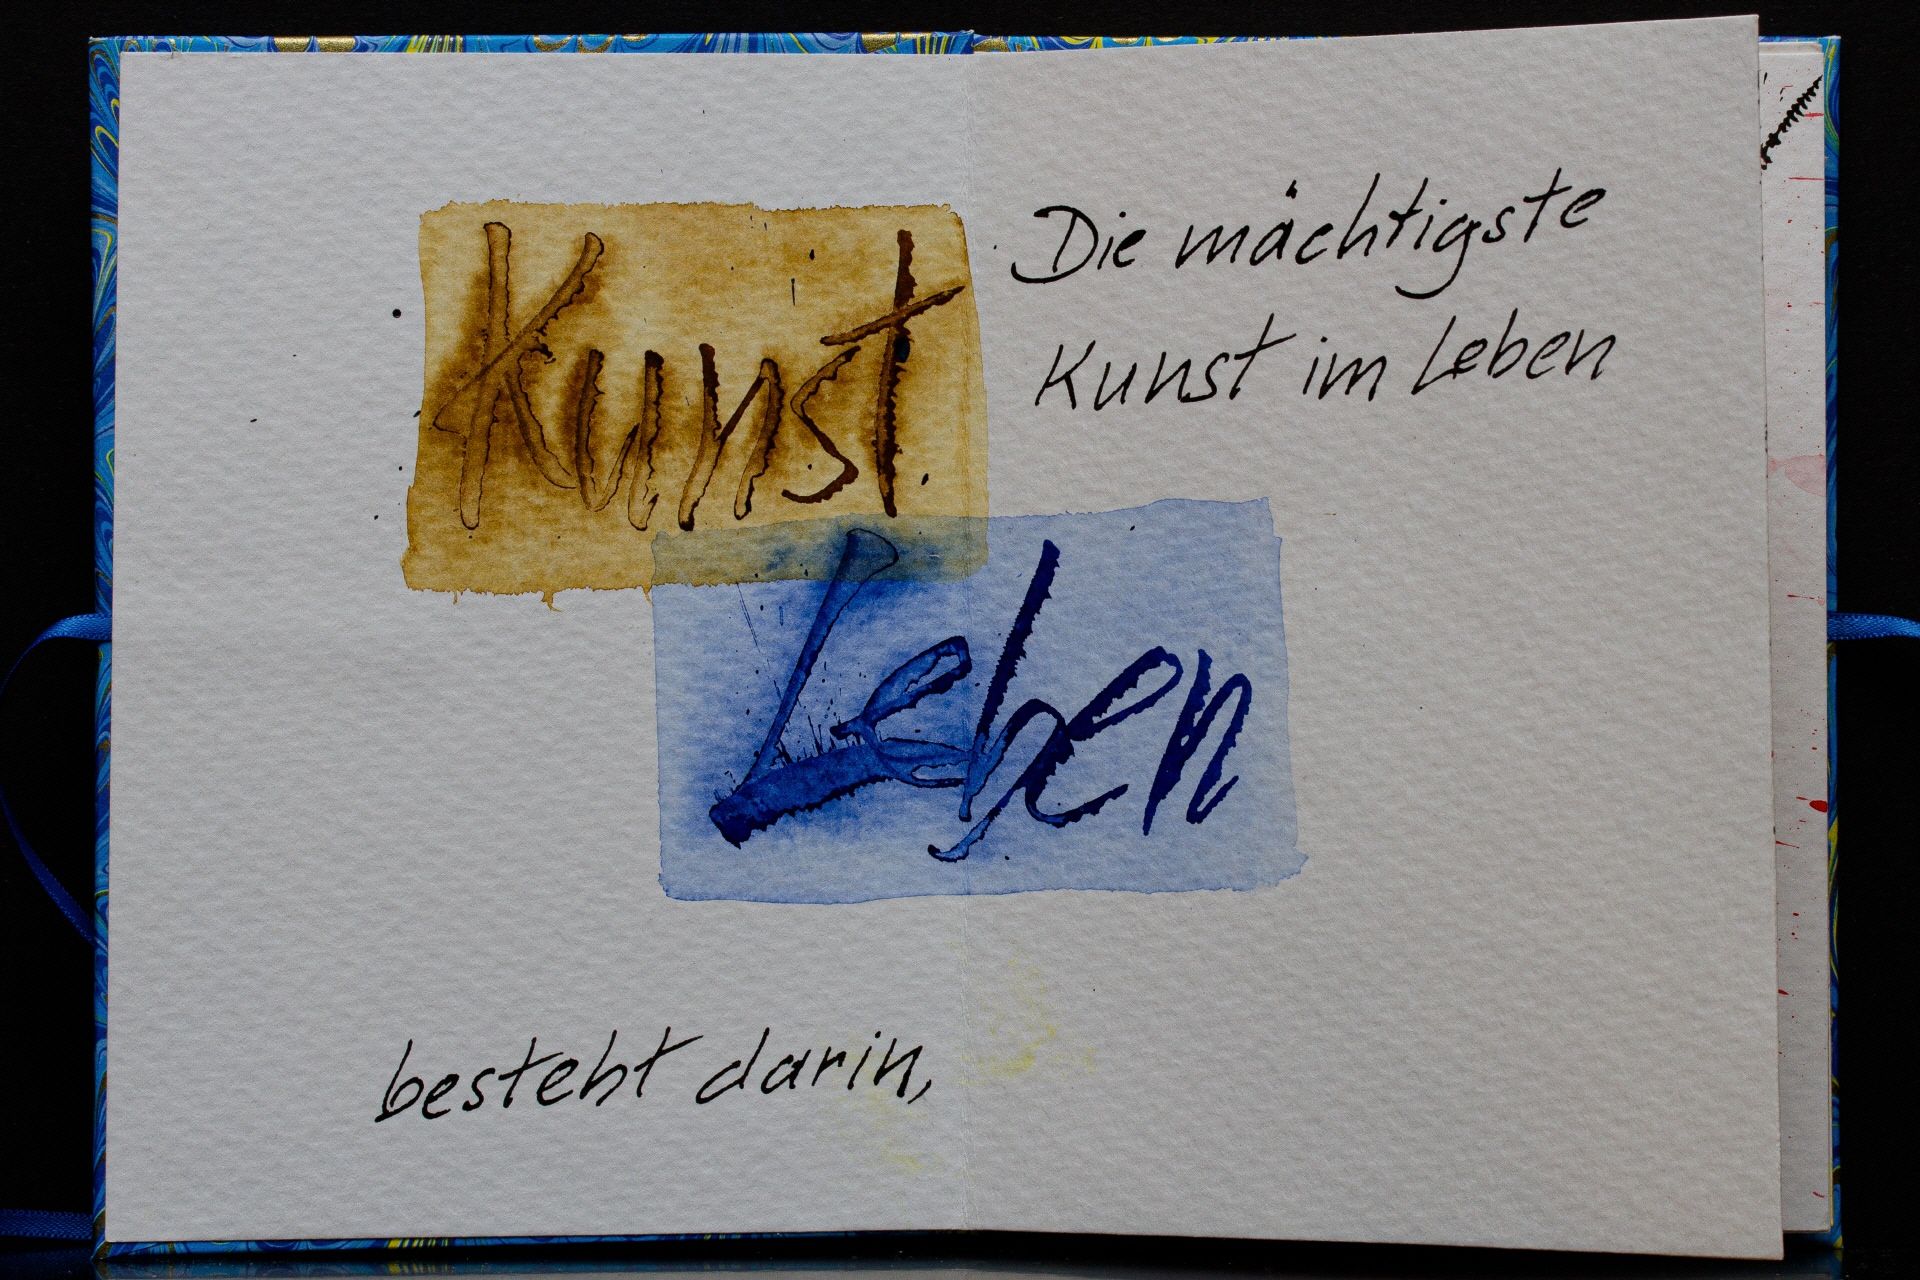 Kunst
Leben
Die mächtigste
Kunst im Leben
besteht darin,